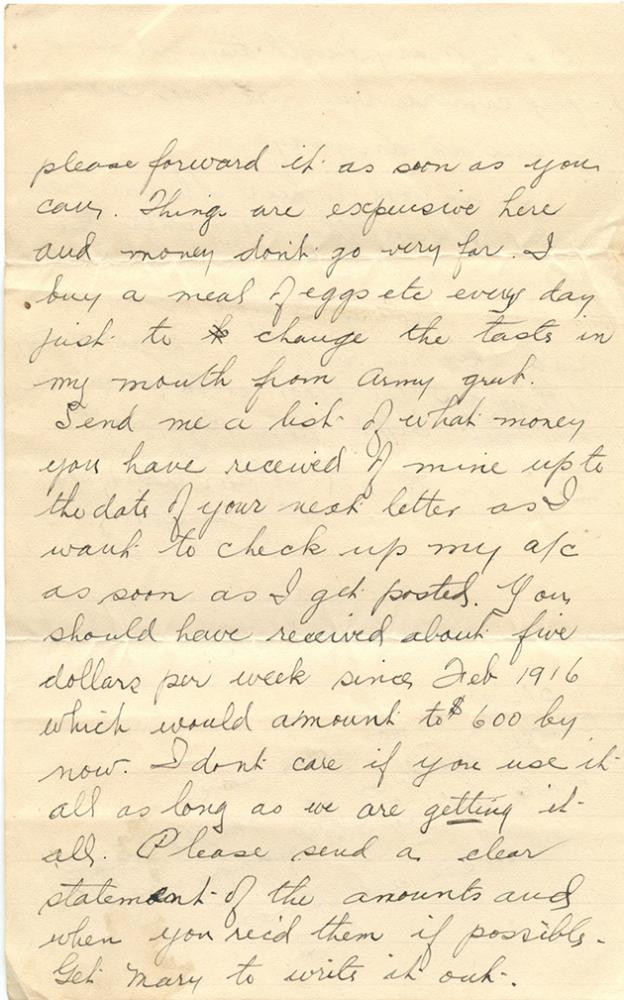 please forward it as soon as you
can. Things are expensive here
and money dont go very far. I
buy a meal of eggs etc every day
just to change the taste in
my mouth from Army grub.
Send me a list of what money
you have received of mine up to
the date of your next letter as I
want to check up my a/c
as soon as I get posted. You
should have received about five
dollars per week since Feb 1916
which would amount to $600 by
now. I dont care if you use it
all as long as we are getting it
all. Please send a clear
statement of the amounts and
when you rec'd them if possible.
Get Mary to write it out.